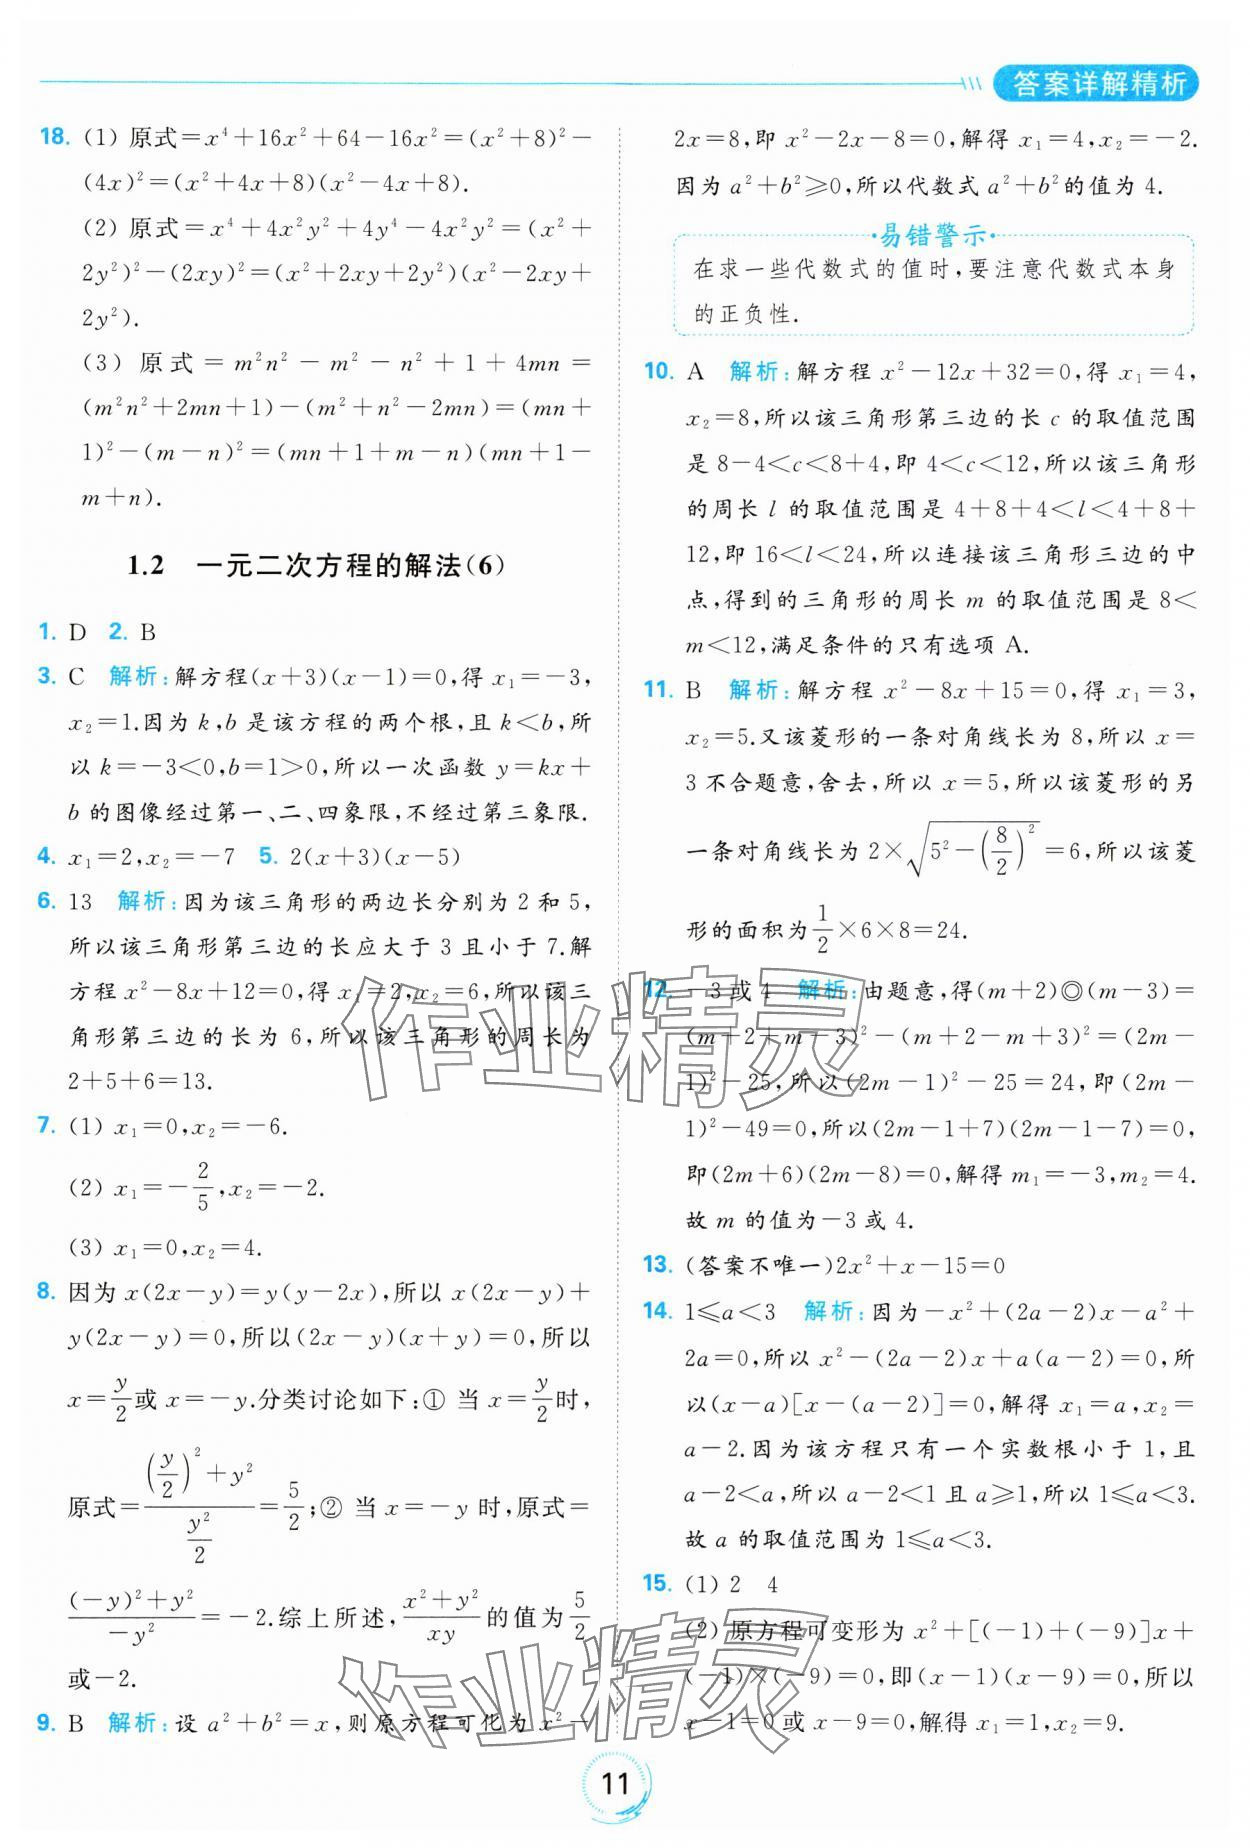 答案详解精析
18. (1) 原式=x⁴+16x²+64-16x²=(x²+8)²-
(4x)²=(x²+4x+8)(x²-4x+8).
(2) 原式=x⁴+4x²y²+4y⁴-4x²y²=(x²+
2y²)²-(2xy)²=(x²+2xy+2y²)(x²-2xy+
2y²).
(3) 原式=m²n²-m²-n²+1+4mn=
(m²n²+2mn+1)-(m²+n²-2mn)=(mn+
1)²-(m-n)²=(mn+1+m-n)(mn+1-
m+n).
1.2 一元二次方程的解法(6)
1. D 2. B
3. C 解析:解方程(x+3)(x-1)=0,得 x₁=-3,
x₂=1.因为 k,b 是该方程的两个根,且 k<b,所
以 k=-3<0,b=1>0,所以一次函数 y=kx+
b 的图像经过第一、二、四象限,不经过第三象限.
4. x₁=2,x₂=-7 5. 2(x+3)(x-5)
6. 13 解析:因为该三角形的两边长分别为 2 和 5,
所以该三角形第三边的长应大于 3 且小于 7.解
方程 x²-8x+12=0,得 x₁=2,x₂=6,所以该三
角形第三边的长为 6,所以该三角形的周长为
2+5+6=13.
7. (1) x₁=0,x₂=-6.
(2) x₁=-2/5,x₂=-2.
(3) x₁=0,x₂=4.
8. 因为 x(2x-y)=y(y-2x),所以 x(2x-y)+
y(2x-y)=0,所以(2x-y)(x+y)=0,所以
x=y/2或 x=-y.分类讨论如下:① 当 x=y/2时,
原式=((y/2)²+y²)/(y²/2)=5/2;② 当 x=-y 时,原式=
((-y)²+y²)/(-y²)=-2.综上所述,(x²+y²)/(xy)的值为5/2
或-2.
9. B 解析:设 a²+b²=x,则原方程可化为 x²-
2x=8,即 x²-2x-8=0,解得 x₁=4,x₂=-2.
因为 a²+b²≥0,所以代数式 a²+b²的值为 4.
·易错警示·
在求一些代数式的值时,要注意代数式本身
的正负性.
10. A 解析:解方程 x²-12x+32=0,得 x₁=4,
x₂=8,所以该三角形第三边的长 c 的取值范围
是 8-4<c<8+4,即 4<c<12,所以该三角形
的周长 l 的取值范围是 4+8+4<l<4+8+
12,即 16<l<24,所以连接该三角形三边的中
点,得到的三角形的周长 m 的取值范围是 8<
m<12,满足条件的只有选项 A.
11. B 解析:解方程 x²-8x+15=0,得 x₁=3,
x₂=5.又该菱形的一条对角线长为 8,所以 x=
3 不合题意,舍去,所以 x=5,所以该菱形的另
一条对角线长为 2×√(5²-(8/2)²)=6,所以该菱
形的面积为1/2×6×8=24.
12. -3 或 4 解析:由题意,得(m+2)◎(m-3)=
(m+2+m-3)²-(m+2-m+3)²=(2m-
1)²-25,所以(2m-1)²-25=24,即(2m-
1)²-49=0,所以(2m-1+7)(2m-1-7)=0,
即(2m+6)(2m-8)=0,解得 m₁=-3,m₂=4.
故 m 的值为-3 或 4.
13. (答案不唯一)2x²+x-15=0
14. 1≤a<3 解析:因为-x²+(2a-2)x-a²+
2a=0,所以 x²-(2a-2)x+a(a-2)=0,所
以(x-a)[x-(a-2)]=0,解得 x₁=a,x₂=
a-2.因为该方程只有一个实数根小于 1,且
a-2<a,所以 a-2<1 且 a≥1,所以 1≤a<3.
故 a 的取值范围为 1≤a<3.
15. (1) 2 4
(2) 原方程可变形为 x²+[(-1)+(-9)]x+
(-1)×(-9)=0,即(x-1)(x-9)=0,所以
x-1=0 或 x-9=0,解得 x₁=1,x₂=9.
作业精灵
作业精灵
11